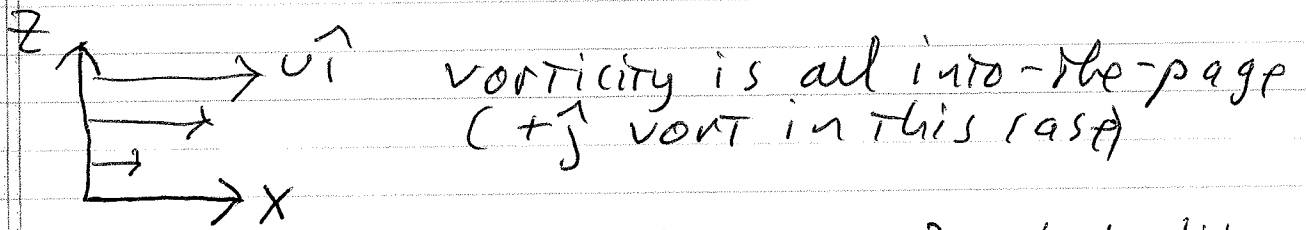 Z
uî vorticity is all into-the-page
(+ĵ vort in this case)
X